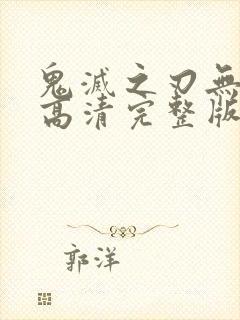 鬼滅之刃無
高清完整版
郭洋